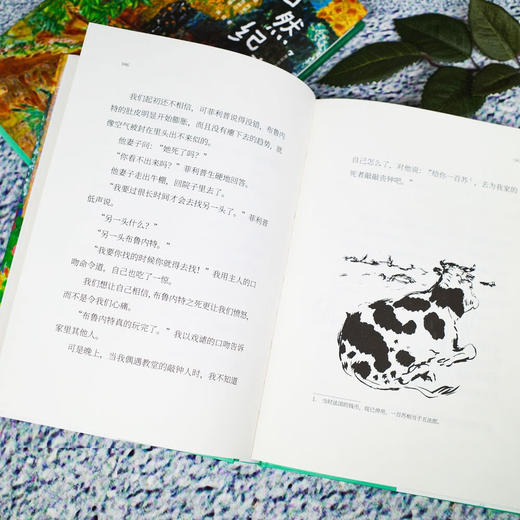 然
纪
我们起初还不相信，可菲利普说得没错，布鲁内
特的肚皮明显开始膨胀，而且没有瘪下去的趋势，就
像空气被封在里头出不来似的。
他妻子问：“她死了吗？”
“你看不出来吗？”菲利普生硬地回答。
他妻子走出牛棚，回院子里去了。
“我要过很长时间才会去找另一头了。”菲利普
低声说。
“另一头什么？”
“另一头布鲁内特。”
“我要你找的时候你就得去找！”我用主人的口
吻命令道，自己也吃了一惊。
我们想让自己相信，布鲁内特之死更让我们愤怒，
而不是令我们心痛。
“布鲁内特真的玩完了。”我以戏谑的口吻告诉
家里其他人。
可是晚上，当我偶遇教堂的敲钟人时，我不知道
自己怎么了，对他说：“给你一百苏¹，去为我家的
死者敲敲丧钟吧。”
1. 当时法国的钱币，现已停用，一百苏相当于五法郎。